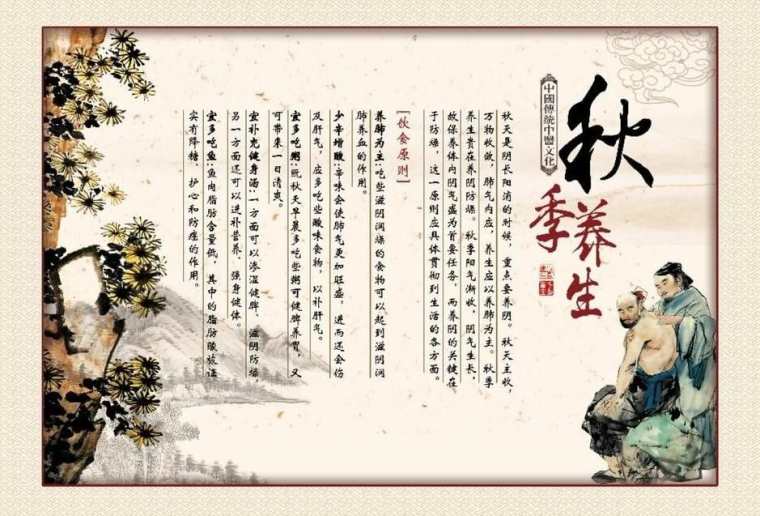 秋
季养生
中國傳統中醫文化
秋天是阴长阳消的时候，重点要养阴。秋天主收，
万物收敛，肺气内应，养生应以养肺为主。秋季
养生贵在养阴防燥。秋季阳气渐收，阴气生长，
故保养体内阴气盛为首要任务，而养阴的关键在
于防燥，这一原则应具体贯彻到生活的各方面。
[饮食原则]
养肺为主：吃些滋阴润燥的食物可以起到滋阴润
肺养血的作用。
少辛增酸：辛味会使肺气更加旺盛，进而还会伤
及肝气，应多吃些酸味食物，以补肝气。
宜多吃粥：既秋天早晨多吃些粥可健脾养胃，又
可带来一日清爽。
宜补充健身汤：一方面可以渗湿健脾、滋阴防燥，
另一方面还可以进补营养、强身健体。
宜多吃鱼：鱼肉脂肪含量低，其中的脂肪酸被证
实有降糖、护心和防癌的作用。